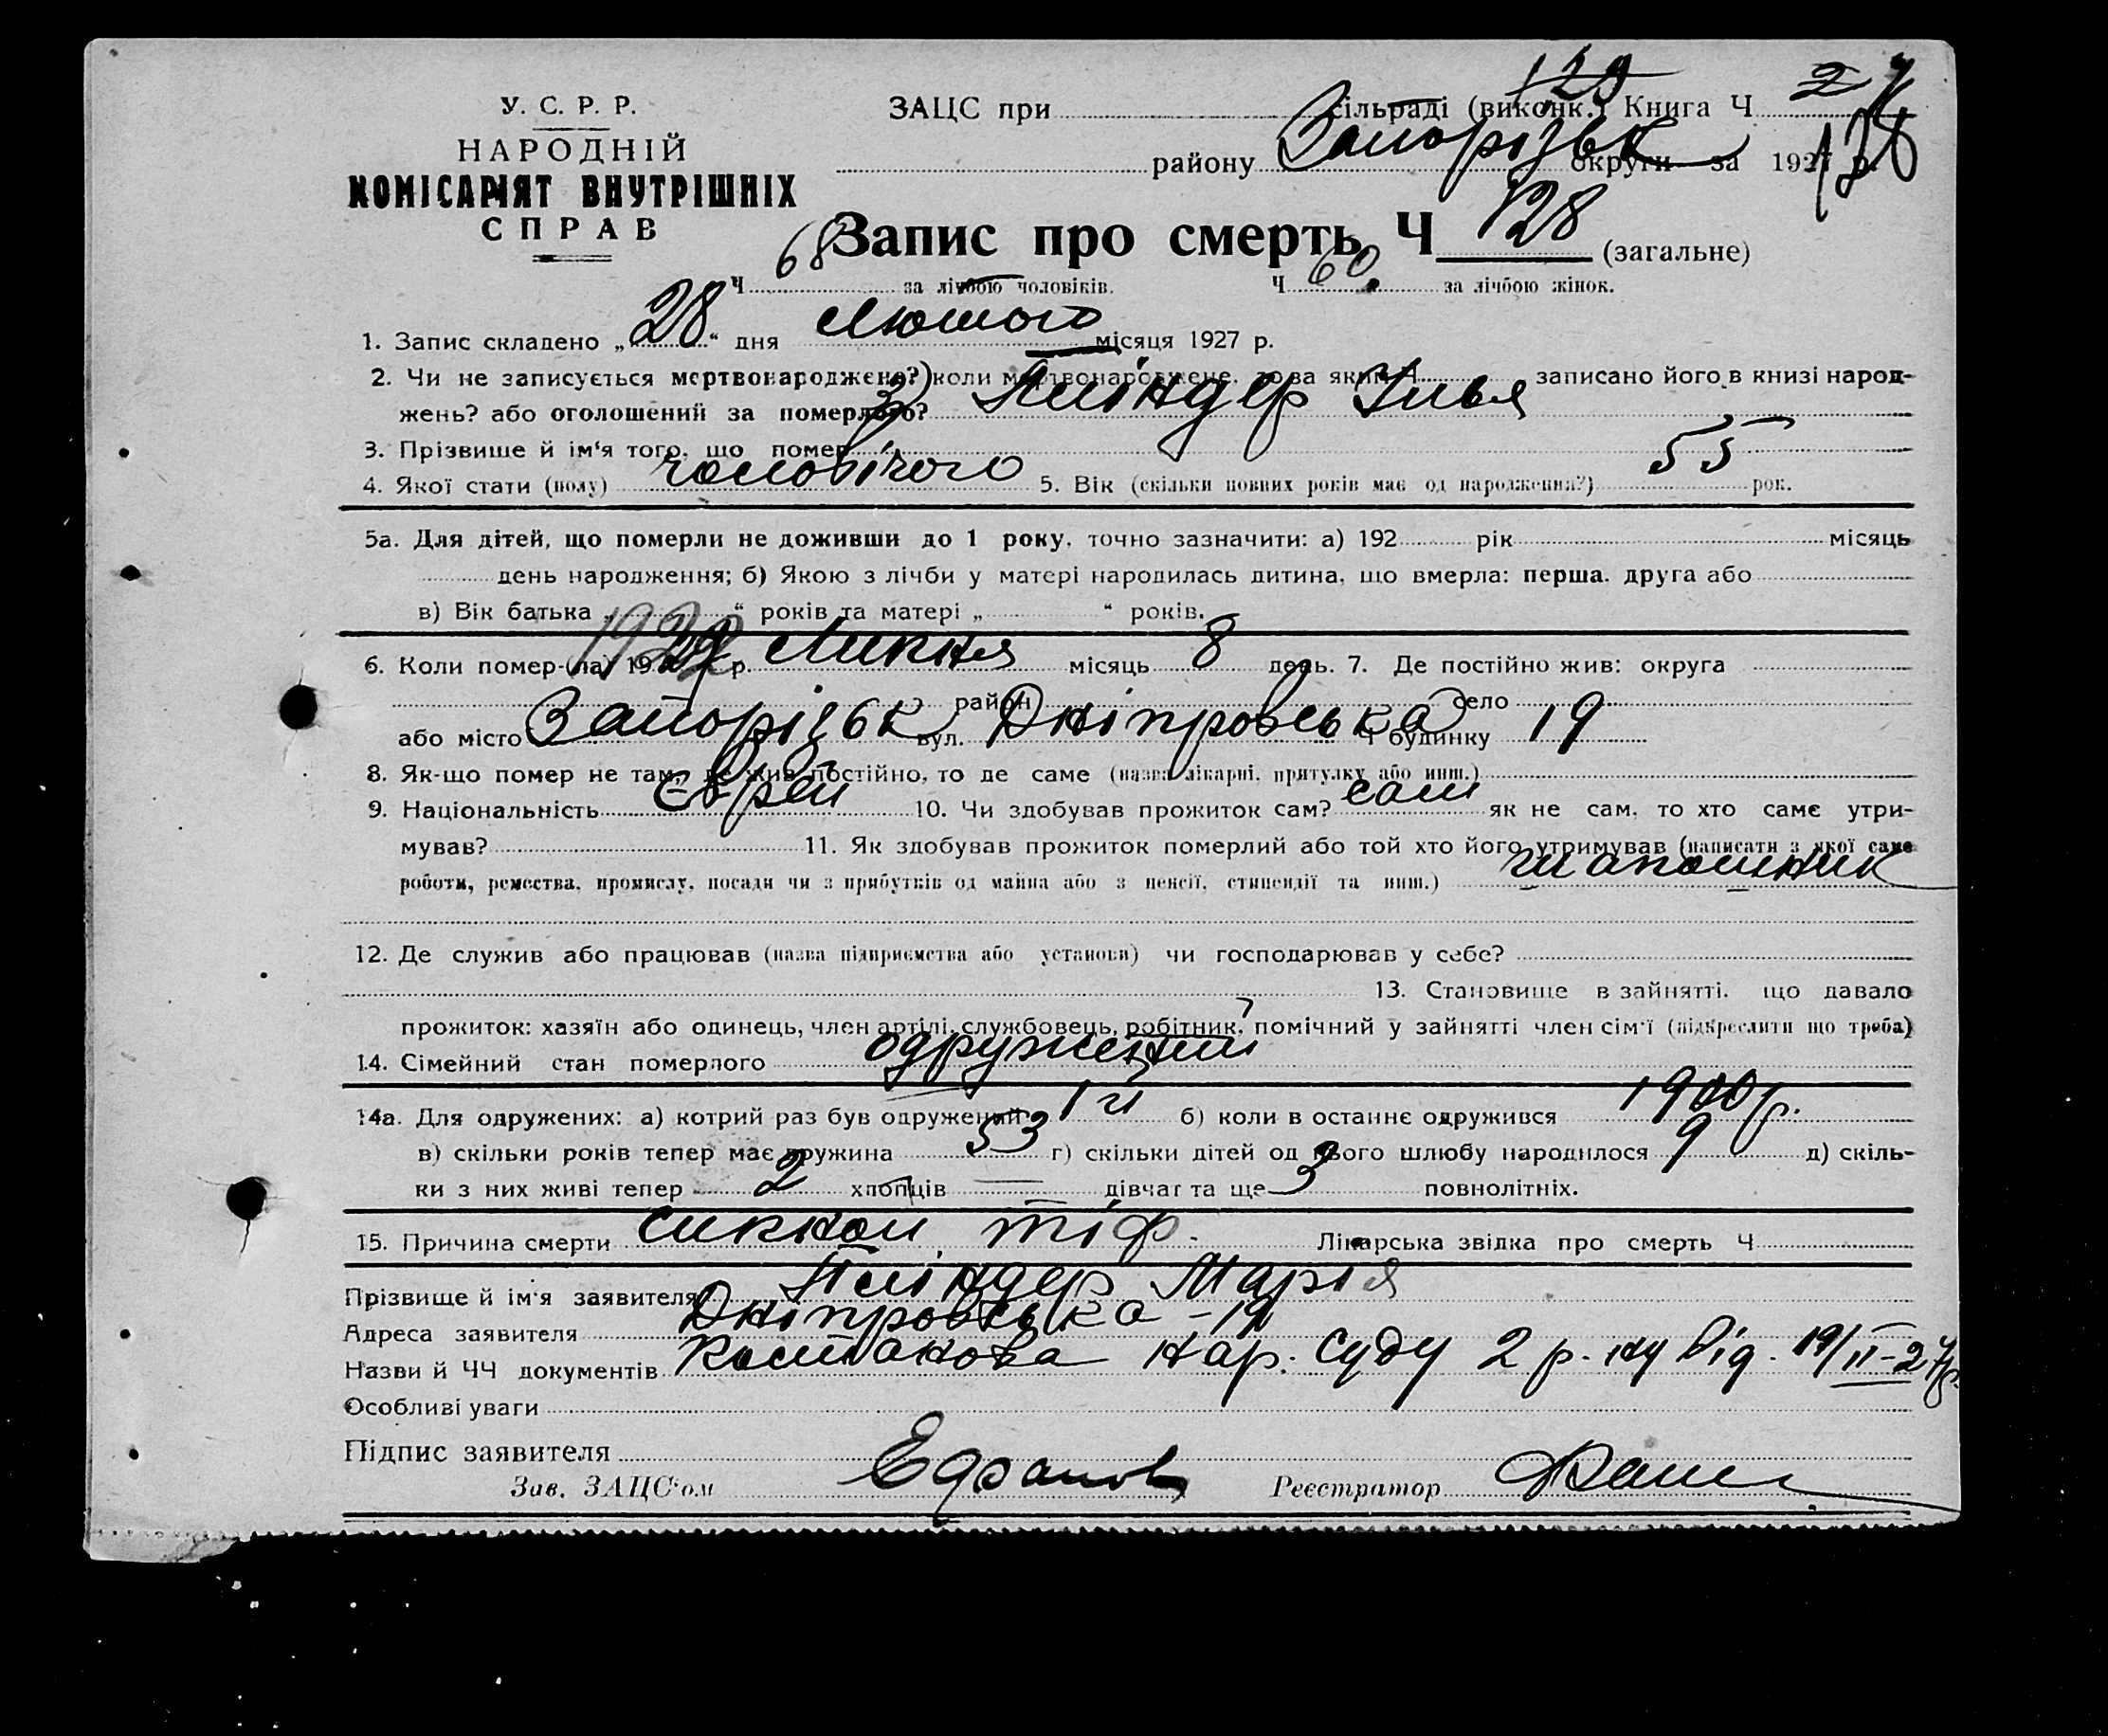 129 2
У. С. Р. Р. ЗАЦС при сільраді (виконк.) Книга Ч
НАРОДНІЙ району Запорізьк округи за 1927 р. 128
КОМІСАРІЯТ ВНУТРІШНІХ
СПРАВ
Запис про смерть Ч 128 (загальне)
Ч 68 за лічбою чоловіків. Ч 60 за лічбою жінок.
1. Запис складено „28“ дня Лютого місяця 1927 р.
2. Чи не записується мертвонароджене? коли мертвонароджене, то за яким Ч записано його в книзі народ-
жень? або оголошений за померлого?
3. Прізвище й ім'я того, що помер 3) Пліндер Илья
4. Якої стати (полу) чоловічого 5. Вік (скільки повних років має од народження?) 55 рок.
5а. Для дітей, що померли не доживши до 1 року, точно зазначити: а) 192 рік місяць
день народження; б) Якою з лічби у матері народилась дитина, що вмерла: перша, друга або
в) Вік батька „ “ років та матері „ “ років.
6. Коли помер-(ла) 19 р. 1922 Липня місяць 8 день. 7. Де постійно жив: округа
район село
або місто Запорізьк вул. Дніпровська Ч будинку 19
8. Як-що помер не там, де жив постійно, то де саме (назва лікарні, притулку або инш.)
9. Національність Єврей 10. Чи здобував прожиток сам? сам як не сам, то хто саме утри-
мував? 11. Як здобував прожиток померлий або той хто його утримував (написати з якої саме
роботи, ремества, промислу, посади чи з прибутків од майна або з пенсії, стипендії та инш.) шапошник
12. Де служив або працював (назва підприємства або установи) чи господарював у себе?
13. Становище в зайнятті, що давало
прожиток: хазяїн або одинець, член артілі, службовець, робітник, помічний у зайнятті член сім'ї (підкреслити що треба)
14. Сімейний стан померлого одружений
14а. Для одружених: а) котрий раз був одружений 1й б) коли в останнє одружився 1900 р.
в) скільки років тепер має дружина 53 г) скільки дітей од цього шлюбу народилося 9 д) скіль-
ки з них живі тепер 2 хлопців — дівчат та ще 3 повнолітніх.
15. Причина смерти сипной тіф. Лікарська звідка про смерть Ч
Прізвище й ім'я заявителя Пліндер Марія
Адреса заявителя Дніпровська - 19
Назви й ЧЧ документів нар. суду 2 р-ну від. 19/II-27р.
Особливі уваги
Підпис заявителя
Зав. ЗАЦС'ом Реєстратор